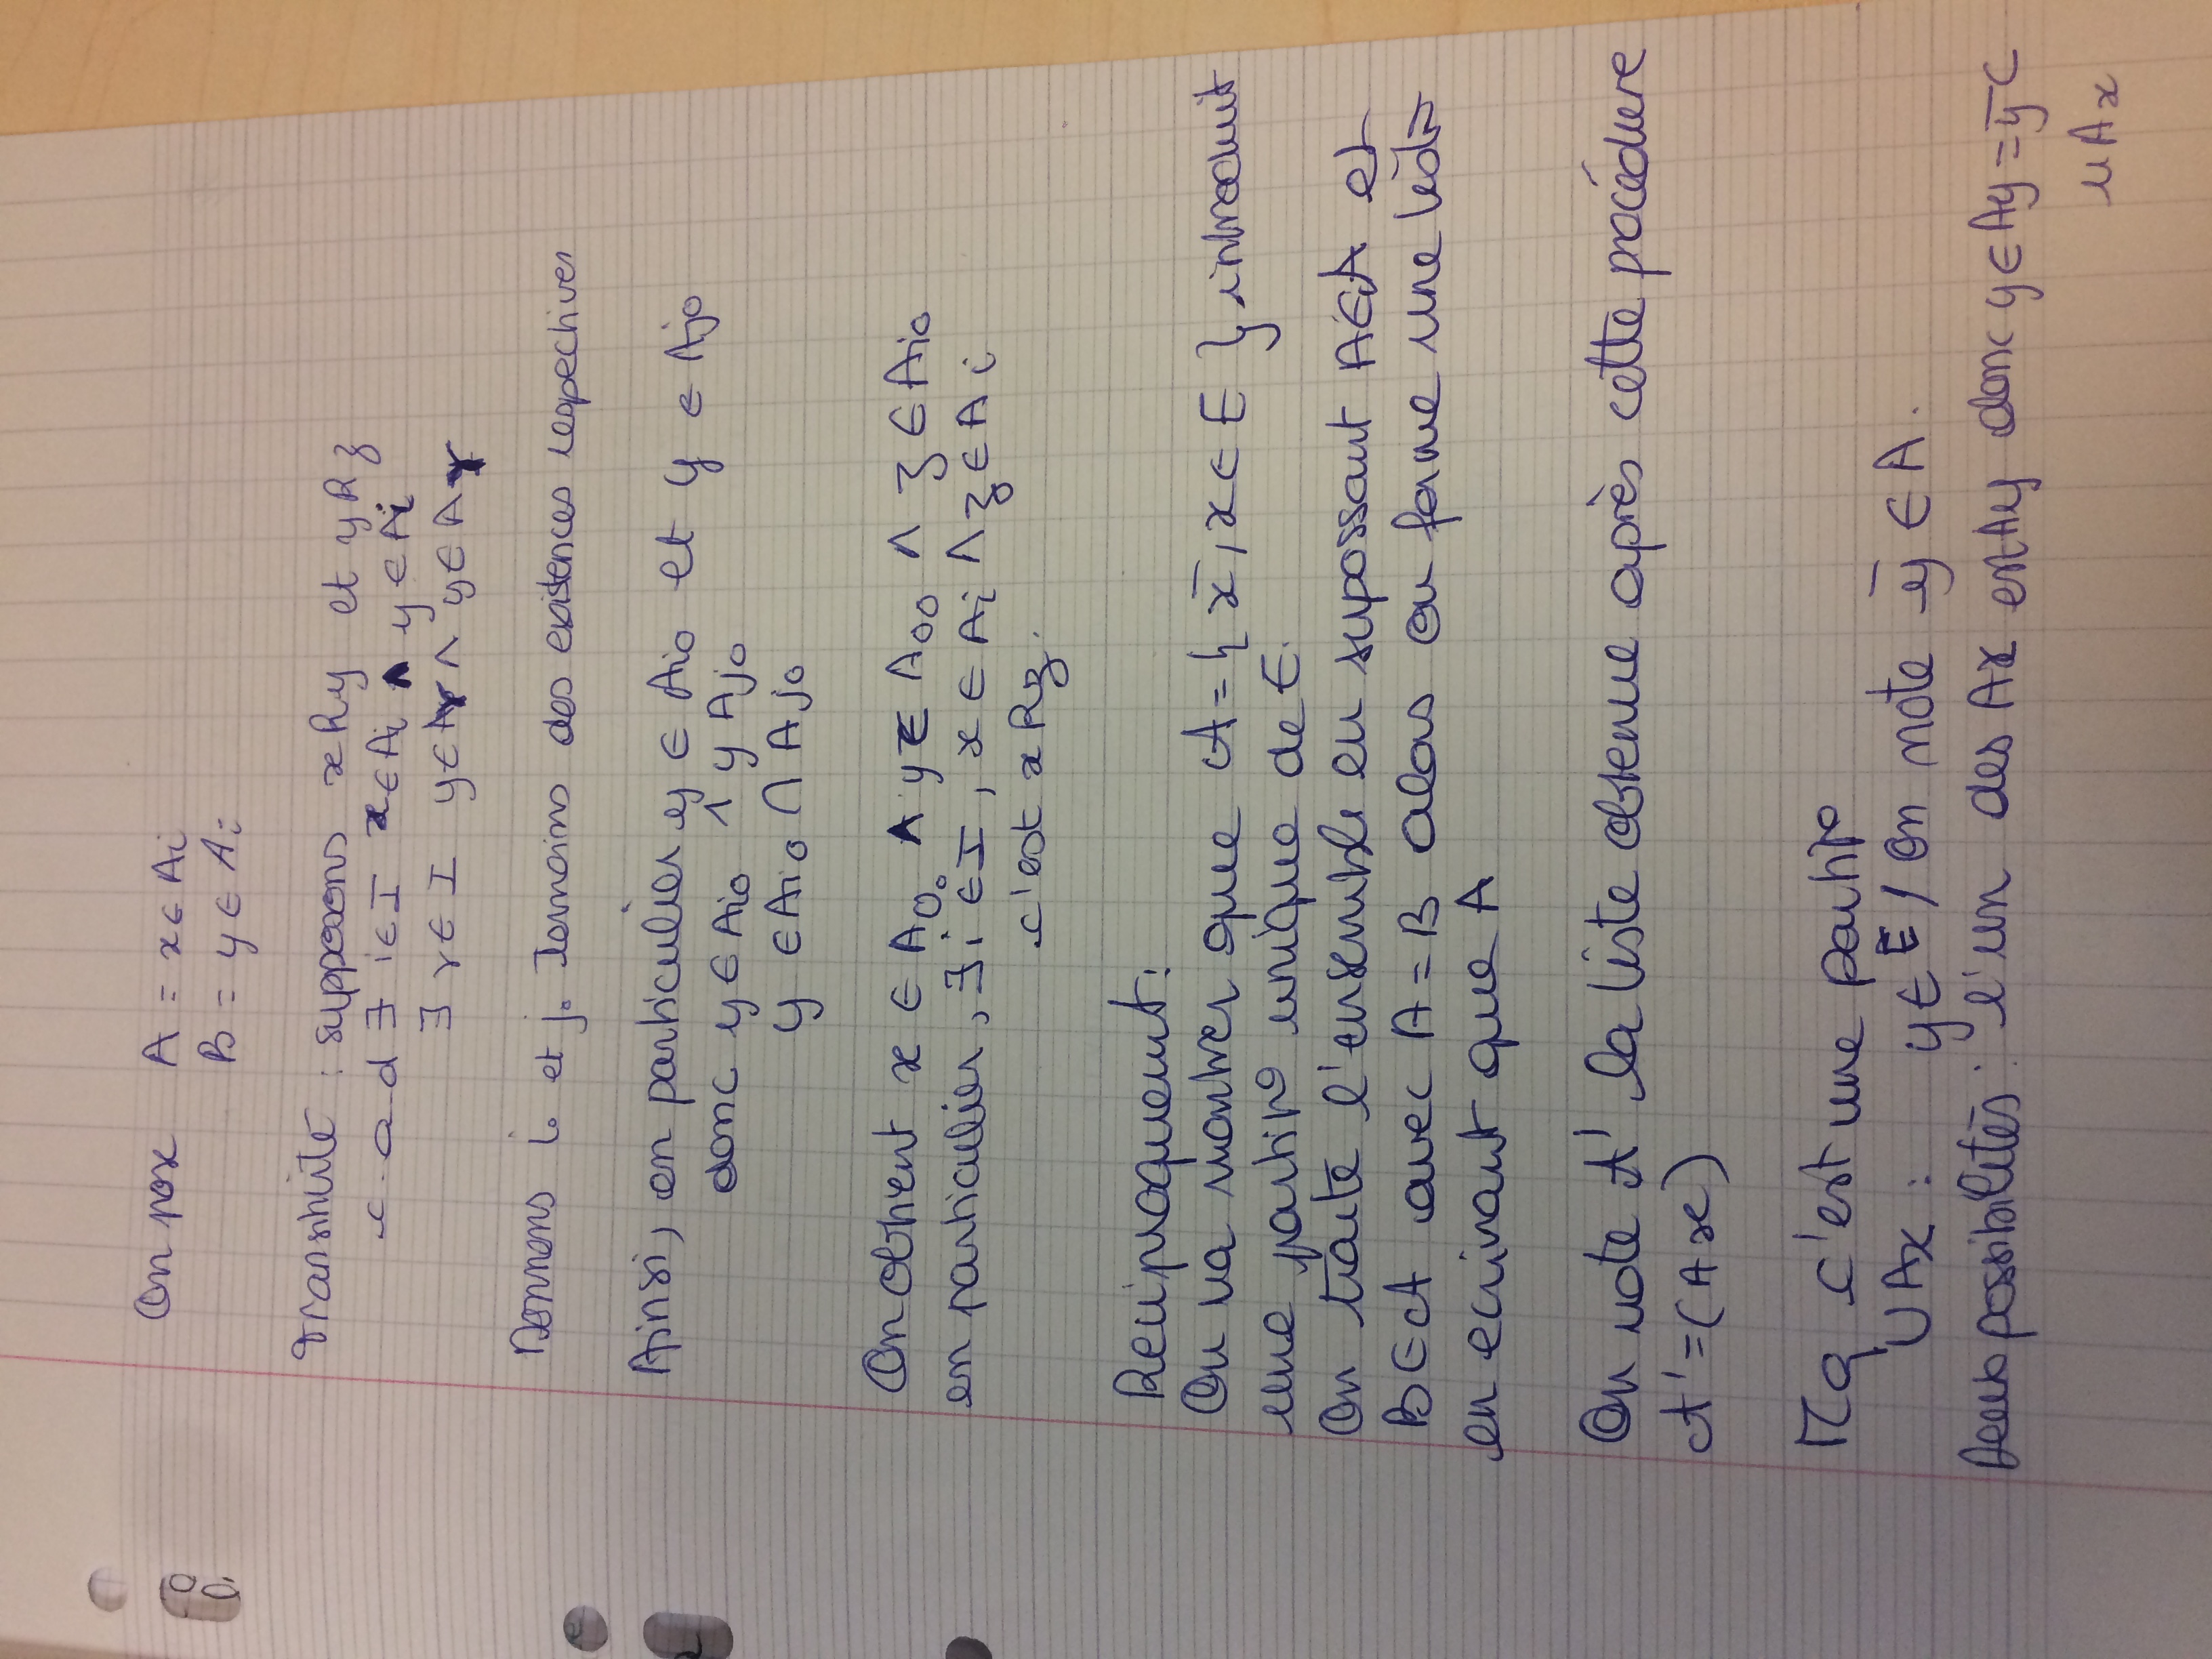 On pose A = x ∈ Ai
B = y ∈ Ai
Transitivité : supposons xRy et yRz
c.a.d ∃ i ∈ I x ∈ Ai ∧ y ∈ Ai
∃ γ ∈ I y ∈ Aγ ∧ y ∈ Aγ
Donnons i₀ et j₀ temoins des existences respectives
Ainsi, en particulier y ∈ Ai₀ et y ∈ Aj₀
donc y ∈ Ai₀ ∧ y Aj₀
y ∈ Ai₀ ∩ Aj₀
On obtient x ∈ A₀₀ ∧ y ∈ A₀₀ ∧ z ∈ Ai₀
en particulier, ∃ i ∈ I, x ∈ Ai ∧ z ∈ Ai
c'est xRz.
Reciproquement:
On va montrer que A = { x̄, x ∈ E } introduit
une partiº unique de E.
On traite l'ensemble en supossant A ∈ A et
B ∈ A avec A = B alors on forme une
en ecrivant que A
On note A' la liste obtenue après cette procédure
A' = (Ax)
Mq c'est une partiº
UAx : y ∈ E / On note ȳ ∈ A.
Deux possibilités : l'un des Ax est Ay donc y ∈ Ay = ȳ ⊂
UAx